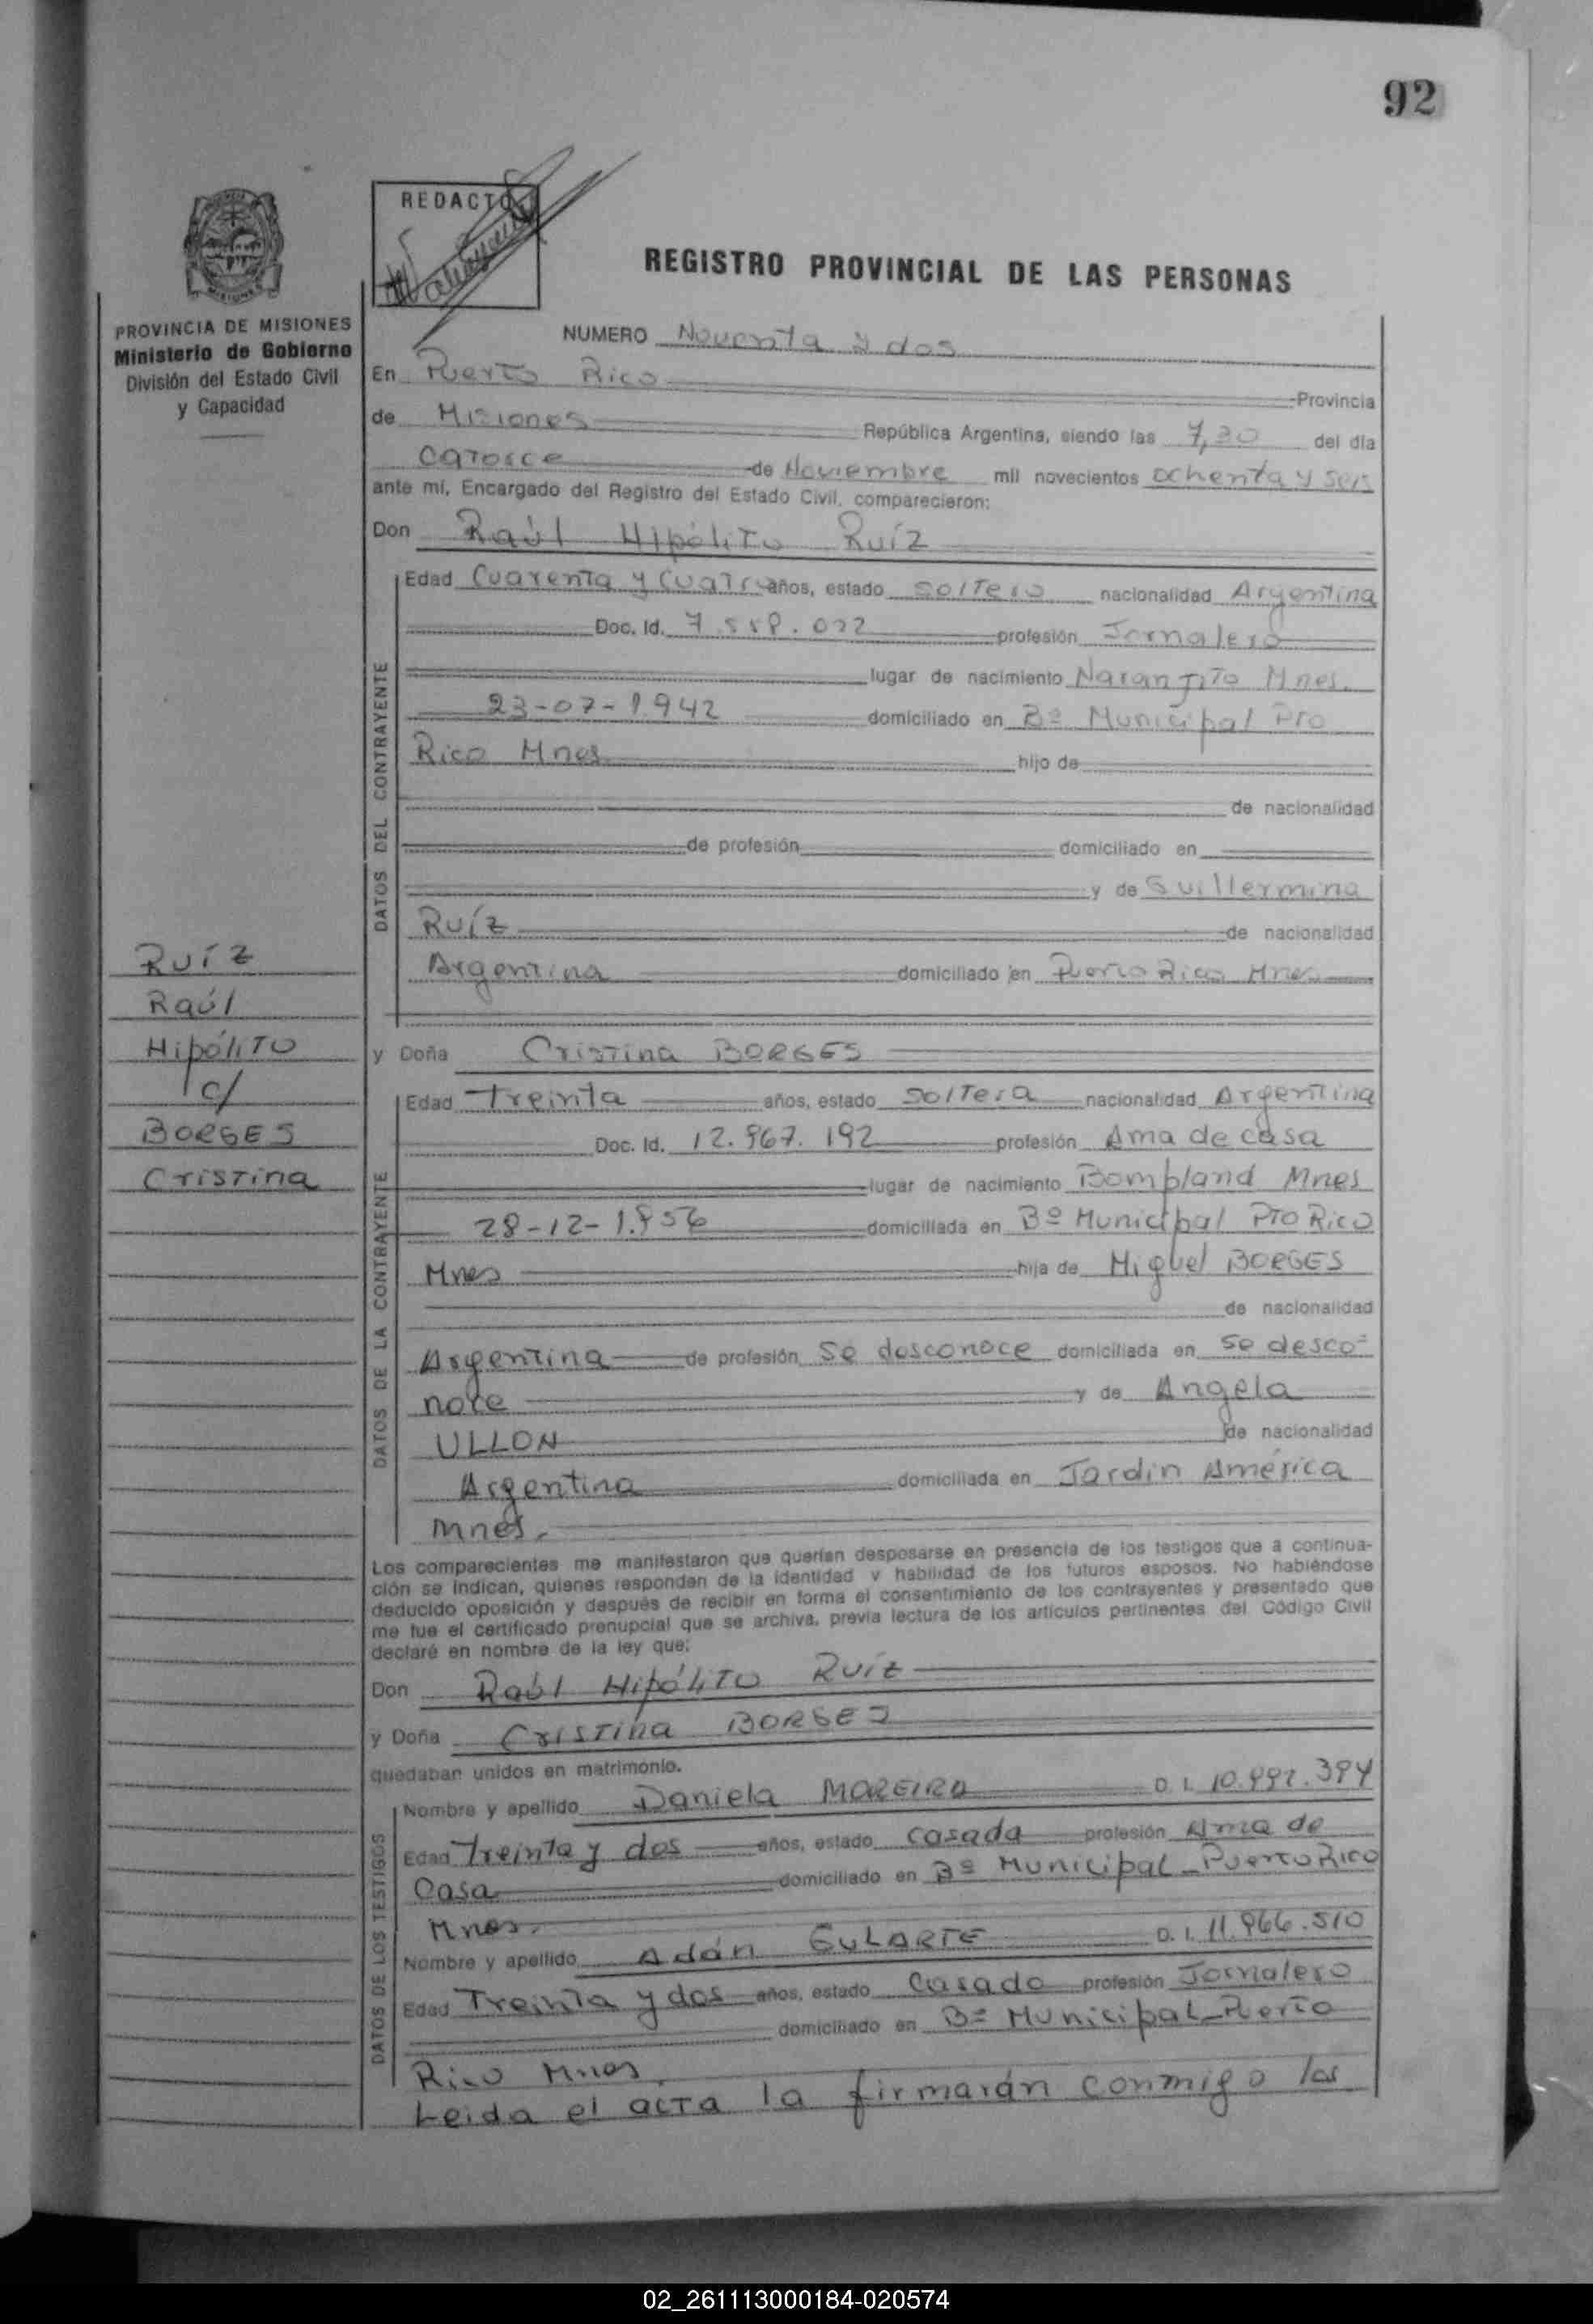 92
REDACTO
REGISTRO PROVINCIAL DE LAS PERSONAS
PROVINCIA DE MISIONES
Ministerio de Gobierno
División del Estado Civil
y Capacidad
NUMERO Noventa y dos
En Puerto Rico Provincia
de Misiones República Argentina, siendo las 7,30 del día
Catorce de Noviembre mil novecientos ochenta y seis
ante mí, Encargado del Registro del Estado Civil, comparecieron:
Don Raúl Hipólito Ruíz
DATOS DEL CONTRAYENTE
Edad Cuarenta y cuatro años, estado soltero nacionalidad Argentina
Doc. Id. profesión Jornalero
lugar de nacimiento Naranjito Mnes.
23-07-1.942 domiciliado en Bº Municipal Pto
Rico Mnes hijo de
de nacionalidad
de profesión domiciliado en
y de Guillermina
Ruíz de nacionalidad
Argentina domiciliado en Puerto Rico Mnes
Ruíz
Raúl
Hipólito
c/
BORGES
Cristina
y Doña Cristina BORGES
DATOS DE LA CONTRAYENTE
Edad Treinta años, estado soltera nacionalidad Argentina
Doc. Id. 12.967.192 profesión Ama de casa
lugar de nacimiento Bompland Mnes
28-12-1.956 domiciliada en Bº Municipal Pto Rico
Mnes hija de Miguel BORGES
de nacionalidad
Argentina de profesión se desconoce domiciliada en se desco=
noce y de Angela
ULLON de nacionalidad
Argentina domiciliada en Jardin América
Mnes.
Los comparecientes me manifestaron que querían desposarse en presencia de los testigos que a continua-
ción se indican, quienes responden de la identidad y habilidad de los futuros esposos. No habiéndose
deducido oposición y después de recibir en forma el consentimiento de los contrayentes y presentado que
me fue el certificado prenupcial que se archiva, previa lectura de los artículos pertinentes del Código Civil
declaré en nombre de la ley que:
Don Raúl Hipólito Ruíz
y Doña Cristina BORGES
quedaban unidos en matrimonio.
DATOS DE LOS TESTIGOS
Nombre y apellido Daniela MOREIRA D. I.
Edad Treinta y dos años, estado casada profesión Ama de
Casa domiciliado en Bº Municipal Puerto Rico
Mnes.
Nombre y apellido Adán GULARTE D. I. 11.966.510
Edad Treinta y dos años, estado Casado profesión Jornalero
domiciliado en Bº Municipal Puerto
Rico Mnes.
Leida el acta la firmarán conmigo los
02_261113000184-020574